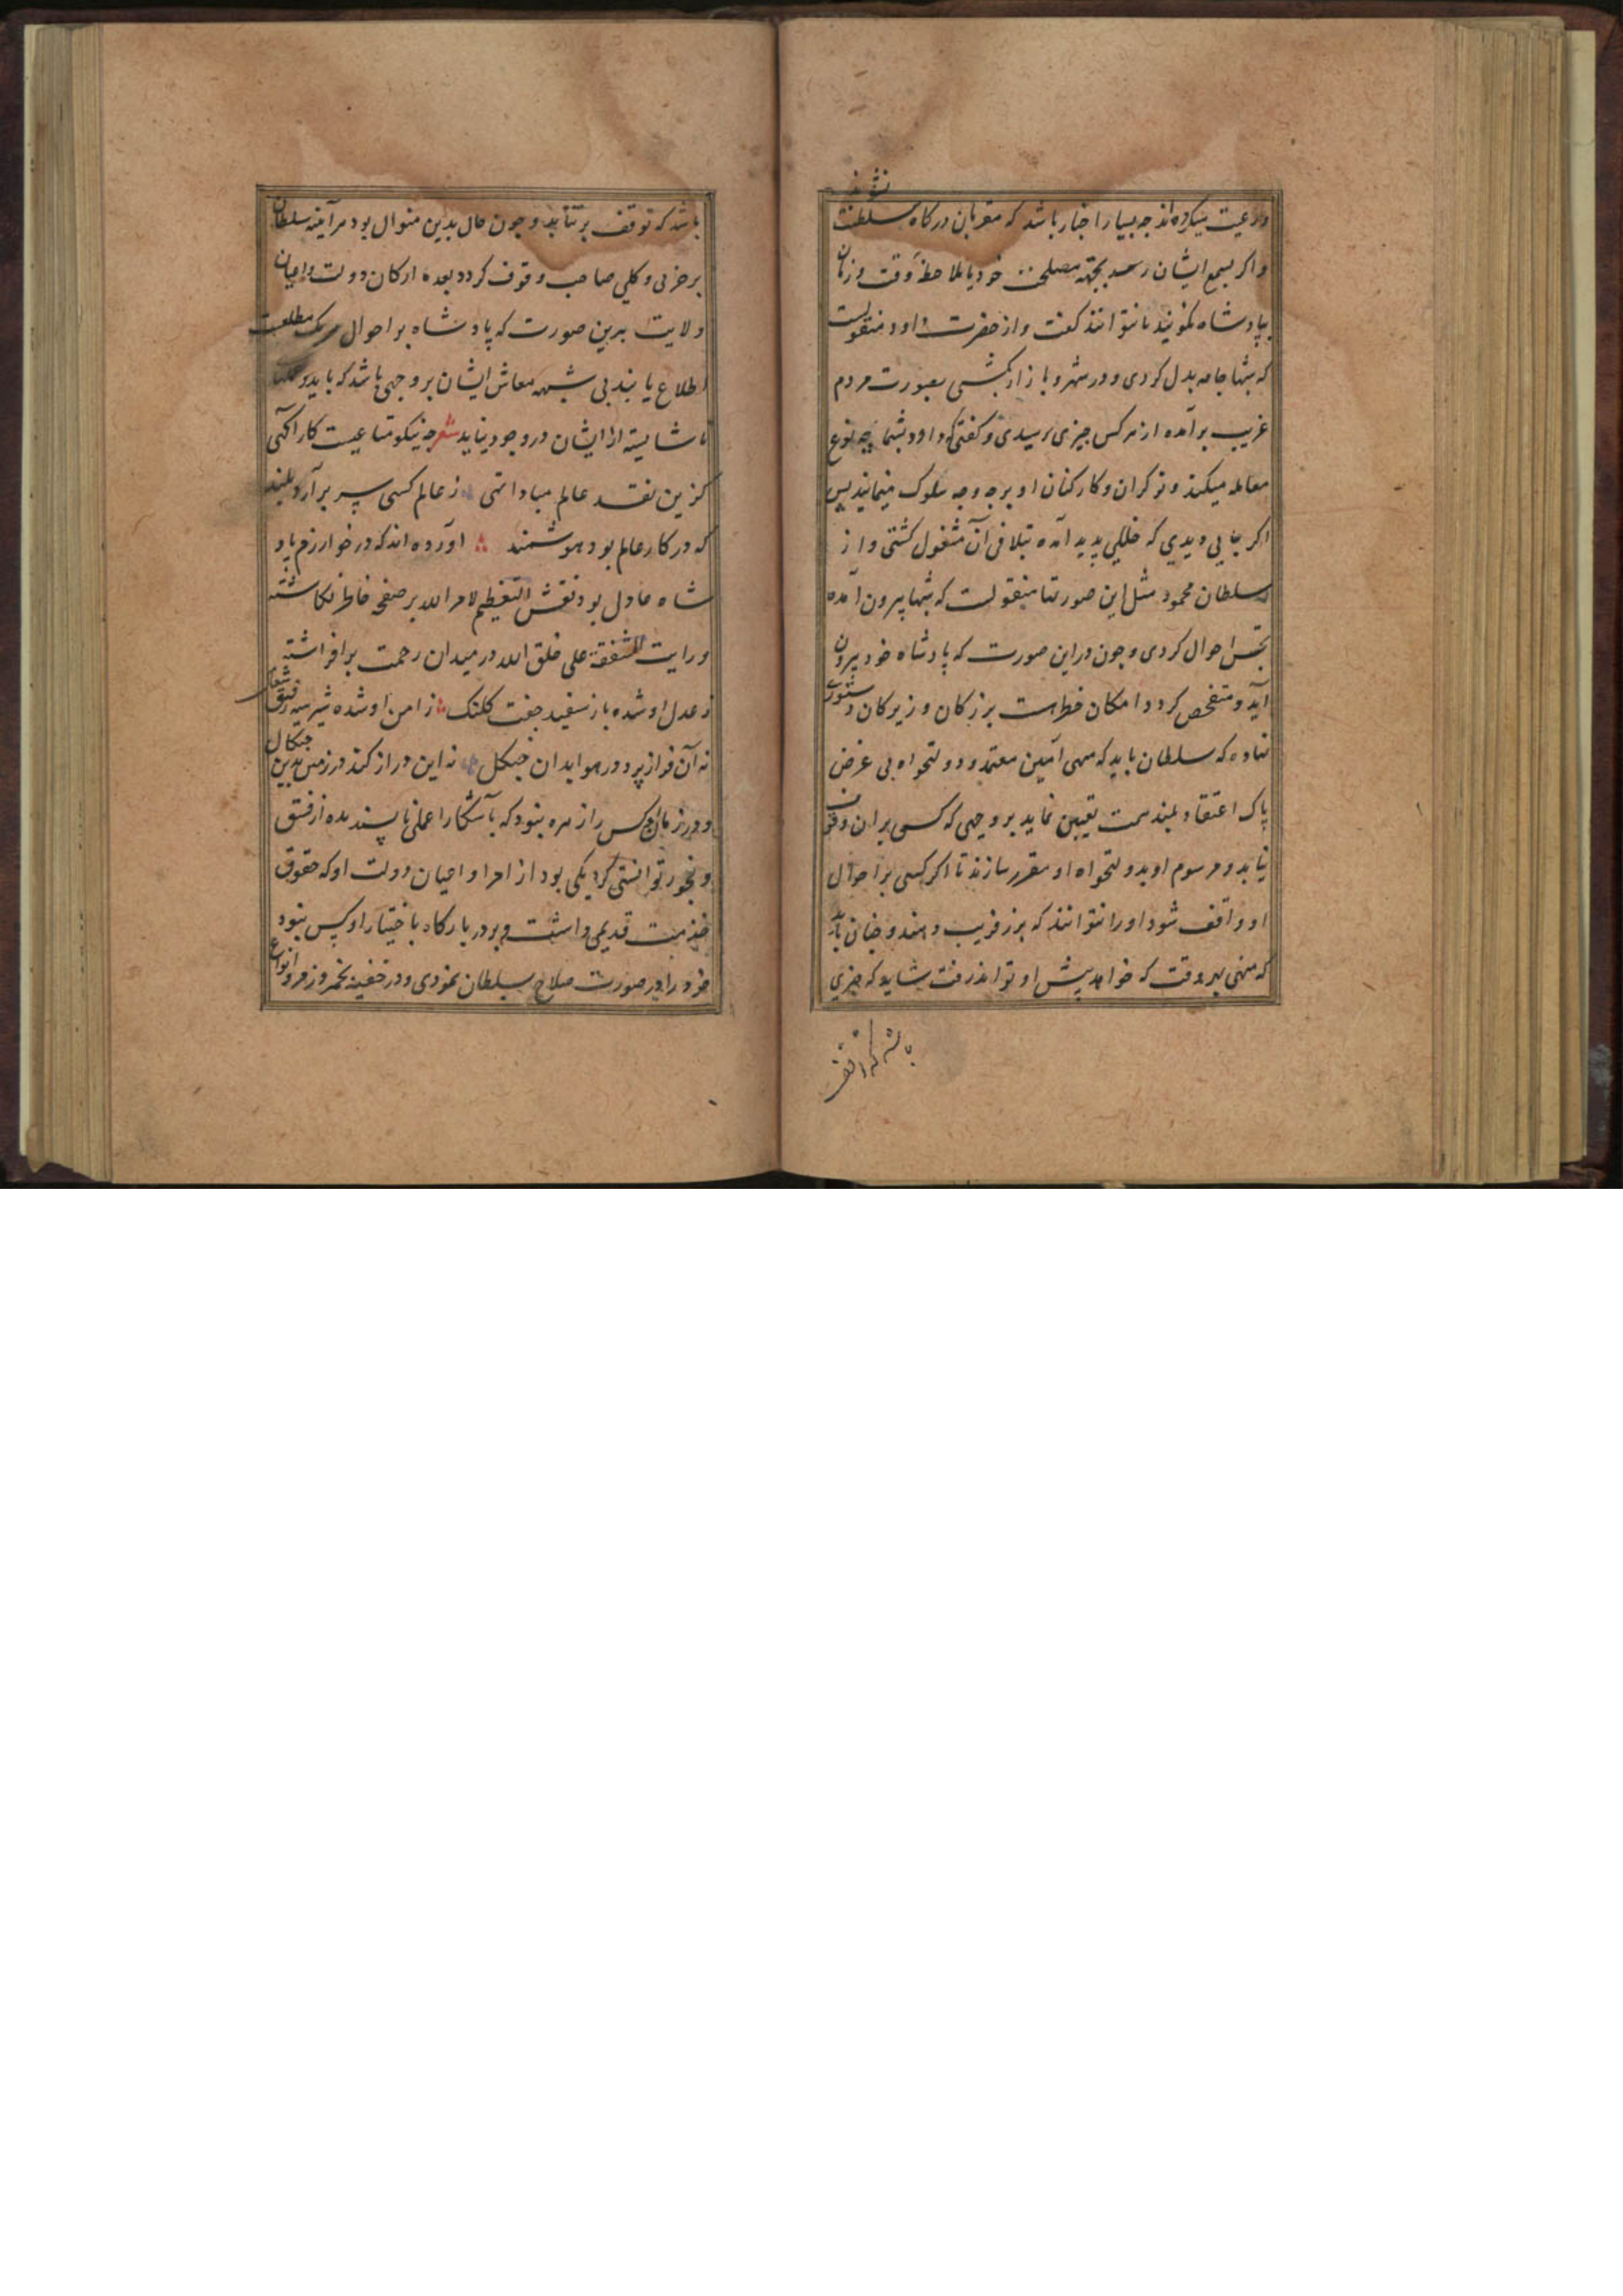 نشوند
و رعیت میکرده اند چه بسیار اخبار باشد که مقربان درگاه سلطنت
و اگر بسمع ایشان رسد بجهة مصلحت خود یا بملاحظه وقت و زمان
بپادشاه نکویند یا نتوانند کفت و از حضرت داود منقولست
که شبها جامه بدل کردی و در شهر و بازار بکشتی بصورت مردم
غریب برآمده از هر کس چیزی پرسیدی و کفتی که داود بشما چه نوع
معامله میکند و نوکران و کارکنان او برچه وجه سلوک مینمایند پس
اکر جایی دیدی که خللی پدید آمده بتلافی آن مشغول کشتی و از
سلطان محمود مثل این صورتها منقولست که شبها بیرون آمده
تجسس احوال کردی و چون در این صورت که پادشاه خود بیرون
آید و متفحص کردد امکان خطر است بزرکان و زیرکان دستوری
نهاده که سلطان باید که منهی امین معتمد و دولتخواه بی غرض
پاک اعتقاد بلند همت تعیین نماید بر وجهی که کسی بران وقوف
نیابد و مرسوم او بدولتخواه او مقرر سازند تا اکر کسی بر احوال
او واقف شود او را نتوانند که بزر فریب دهند و چنان باید
که منهی بهر وقت که خواهد پیش او تواند رفت شاید که چیزی
باشد که توقف
باشد که توقف برنتابد و چون حال بدین منوال بود هر آینه سلطان
بر جزئی و کلی صاحب وقوف کردد بعده ارکان دولت و اعیان
ولایت برین صورت که پادشاه بر احوال هر یک مطلعست
اطلاع یابند بی شبهه معاش ایشان بر وجهی باشد که باید و عملها
ناشایسته از ایشان در وجود نیاید شعر چه نیکو متاعیست کار آکهی
کزین نقد عالم مبادا تهی ز عالم کسی سر برآرد بلند
که در کار عالم بود هوشمند آورده اند که در خوارزم پاد
شاه عادل بود نقش التعظیم لامر الله بر صفحه خاطر نکاشته
و رایت الشفقة علی خلق الله در میدان رحمت برافراشته
ز عدل او شده باز سفید جفت کلنک ز امن او شده شیر سیه رفیق شغال
نه آن فراز پرد در هوا بدان جنکل نه این دراز کند در زمین بدین جنکال
و در زمان او کس را زهره نبود که بآشکارا عملی ناپسندیده از فسق
و فجور توانستی کرد یکی بود از امرا و اعیان دولت او که حقوق
خدمت قدیمی داشت و بر در بارکاه باختیار او کس نبود
خود را در صورت صلاح بسلطان نمودی و در خفیه بخمر و زمر و انواع